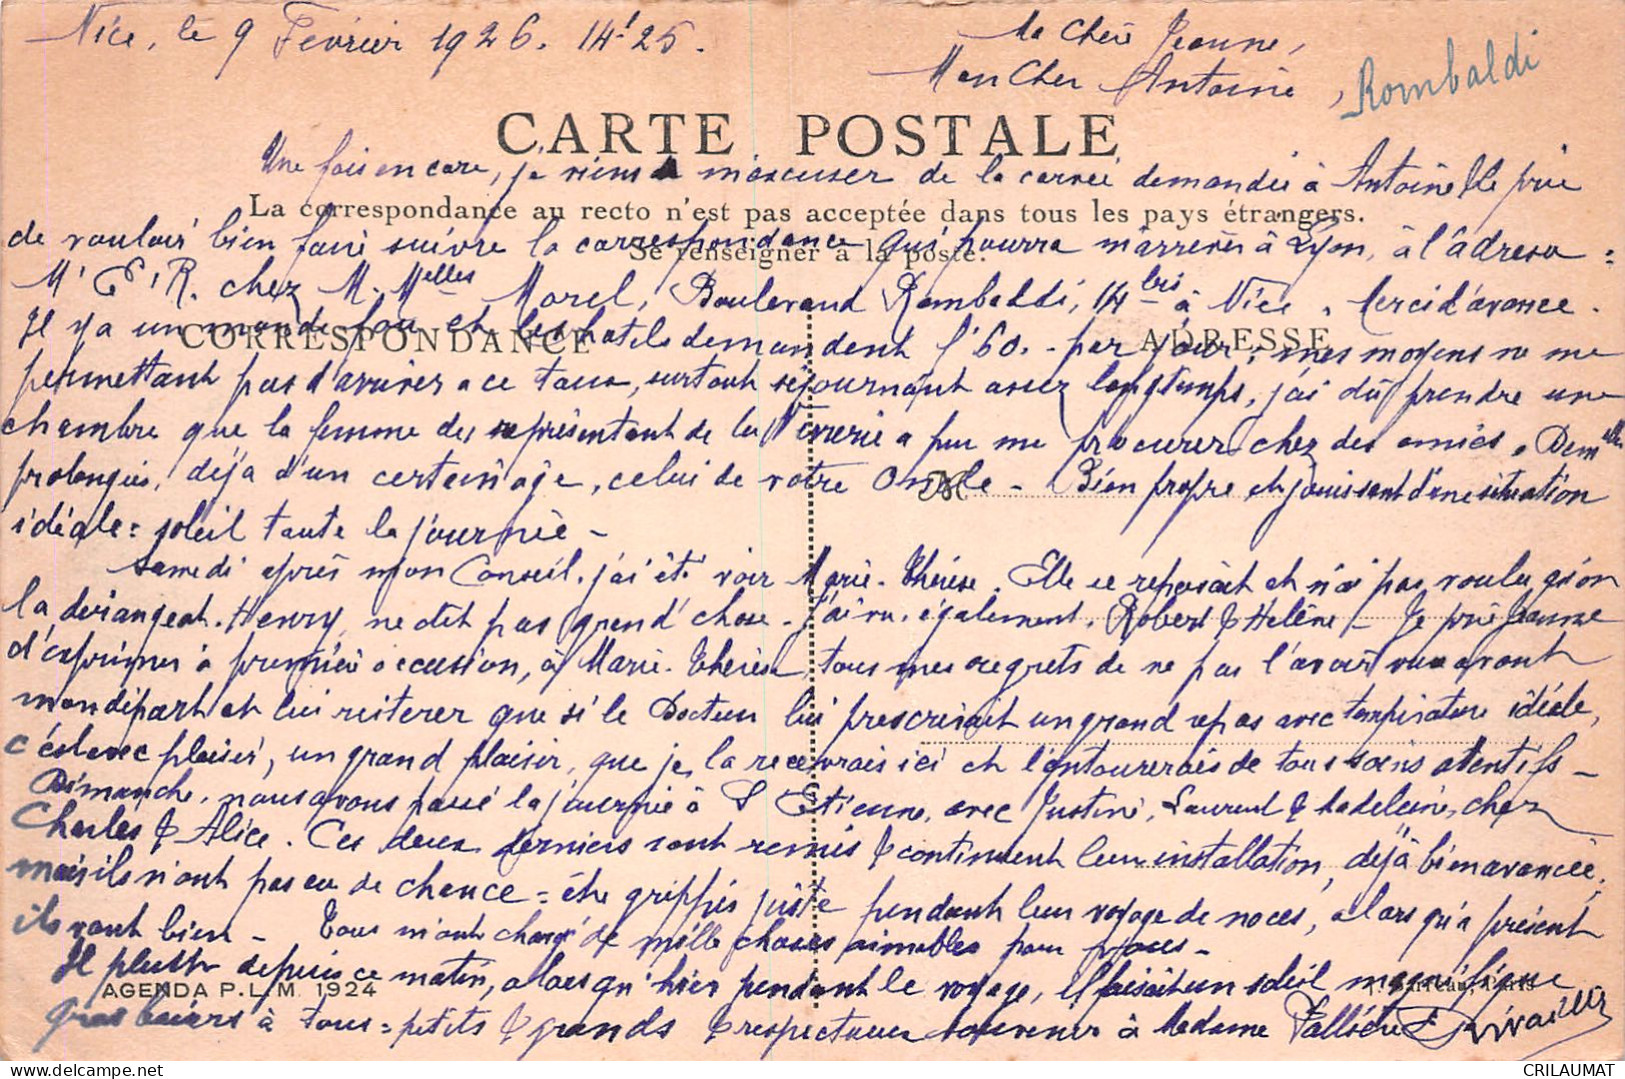 Nice, le 9 Février 1926. 14h25.
Ma Chère Jeanne,
Mon Cher Antoine,
Rombaldi
CARTE POSTALE
Une fois encore, je viens m'excuser de la corvée demandée à Antoine. Je le prie
La correspondance au recto n'est pas acceptée dans tous les pays étrangers.
de vouloir bien faire suivre la correspondance qui pourra m'arriver à Lyon, à l'adresse :
Se renseigner à la poste.
Mr E. R. chez M. Melles Morel, Boulevard Rombaldi, 14 bis à Nice. Merci d'avance.
Il y a un monde fou et les hotels demandent 60. - par jour; mes moyens ne me
CORRESPONDANCE
ADRESSE
permettant pas d'arriver à ce taux, surtout séjournant assez longtemps, j'ai dû prendre une
chambre que la femme du représentant de la Verrerie a pu me procurer chez des amies. Demelles
prolongées, déjà d'un certain âge, celui de votre Oncle - Bien propre et jouissant d'une situation
M
idéale = soleil toute la journée -
Samedi après mon Conseil, j'ai été voir Marie-Thérèse. Elle se reposait et n'ai pas voulu qu'on
la dérangeat. Henry ne dit pas grand'chose - J'ai vu, également, Robert & Hélène - Je prie Jeanne
d'exprimer à première occasion, à Marie-Thérèse, tous mes regrets de ne pas l'avoir vue avant
mon départ et lui réitérer que si le Docteur lui prescrivait un grand repos avec température idéale,
c'est avec plaisir, un grand plaisir, que je la recevrais ici et l'entourerais de tous soins attentifs -
Dimanche, nous avons passé la journée à St Etienne, avec Justine, Laurent & Madeleine, chez
Charles & Alice. Ces deux derniers sont remis & continuent leur installation, déjà bien avancée;
mais ils n'ont pas eu de chance = être grippés juste pendant leur voyage de noces, alors qu'à présent
ils vont bien - Tous m'ont chargé de mille choses aimables pour vous -
Il pleut depuis ce matin, alors qu'hier pendant le voyage, il faisait un soleil magnifique
AGENDA P.L.M. 1924
Gros baisers à tous = petits & grands & respectueux souvenir à Madame